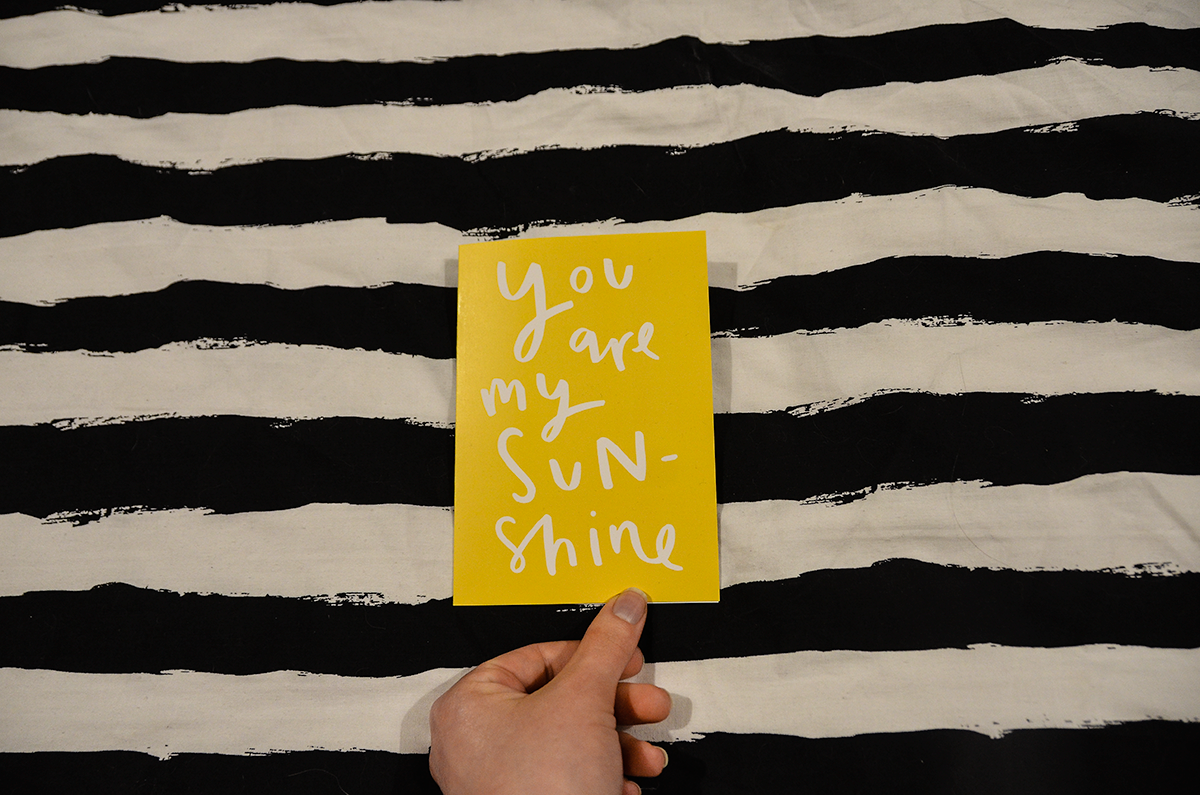 You
are
my
SUN-
shine